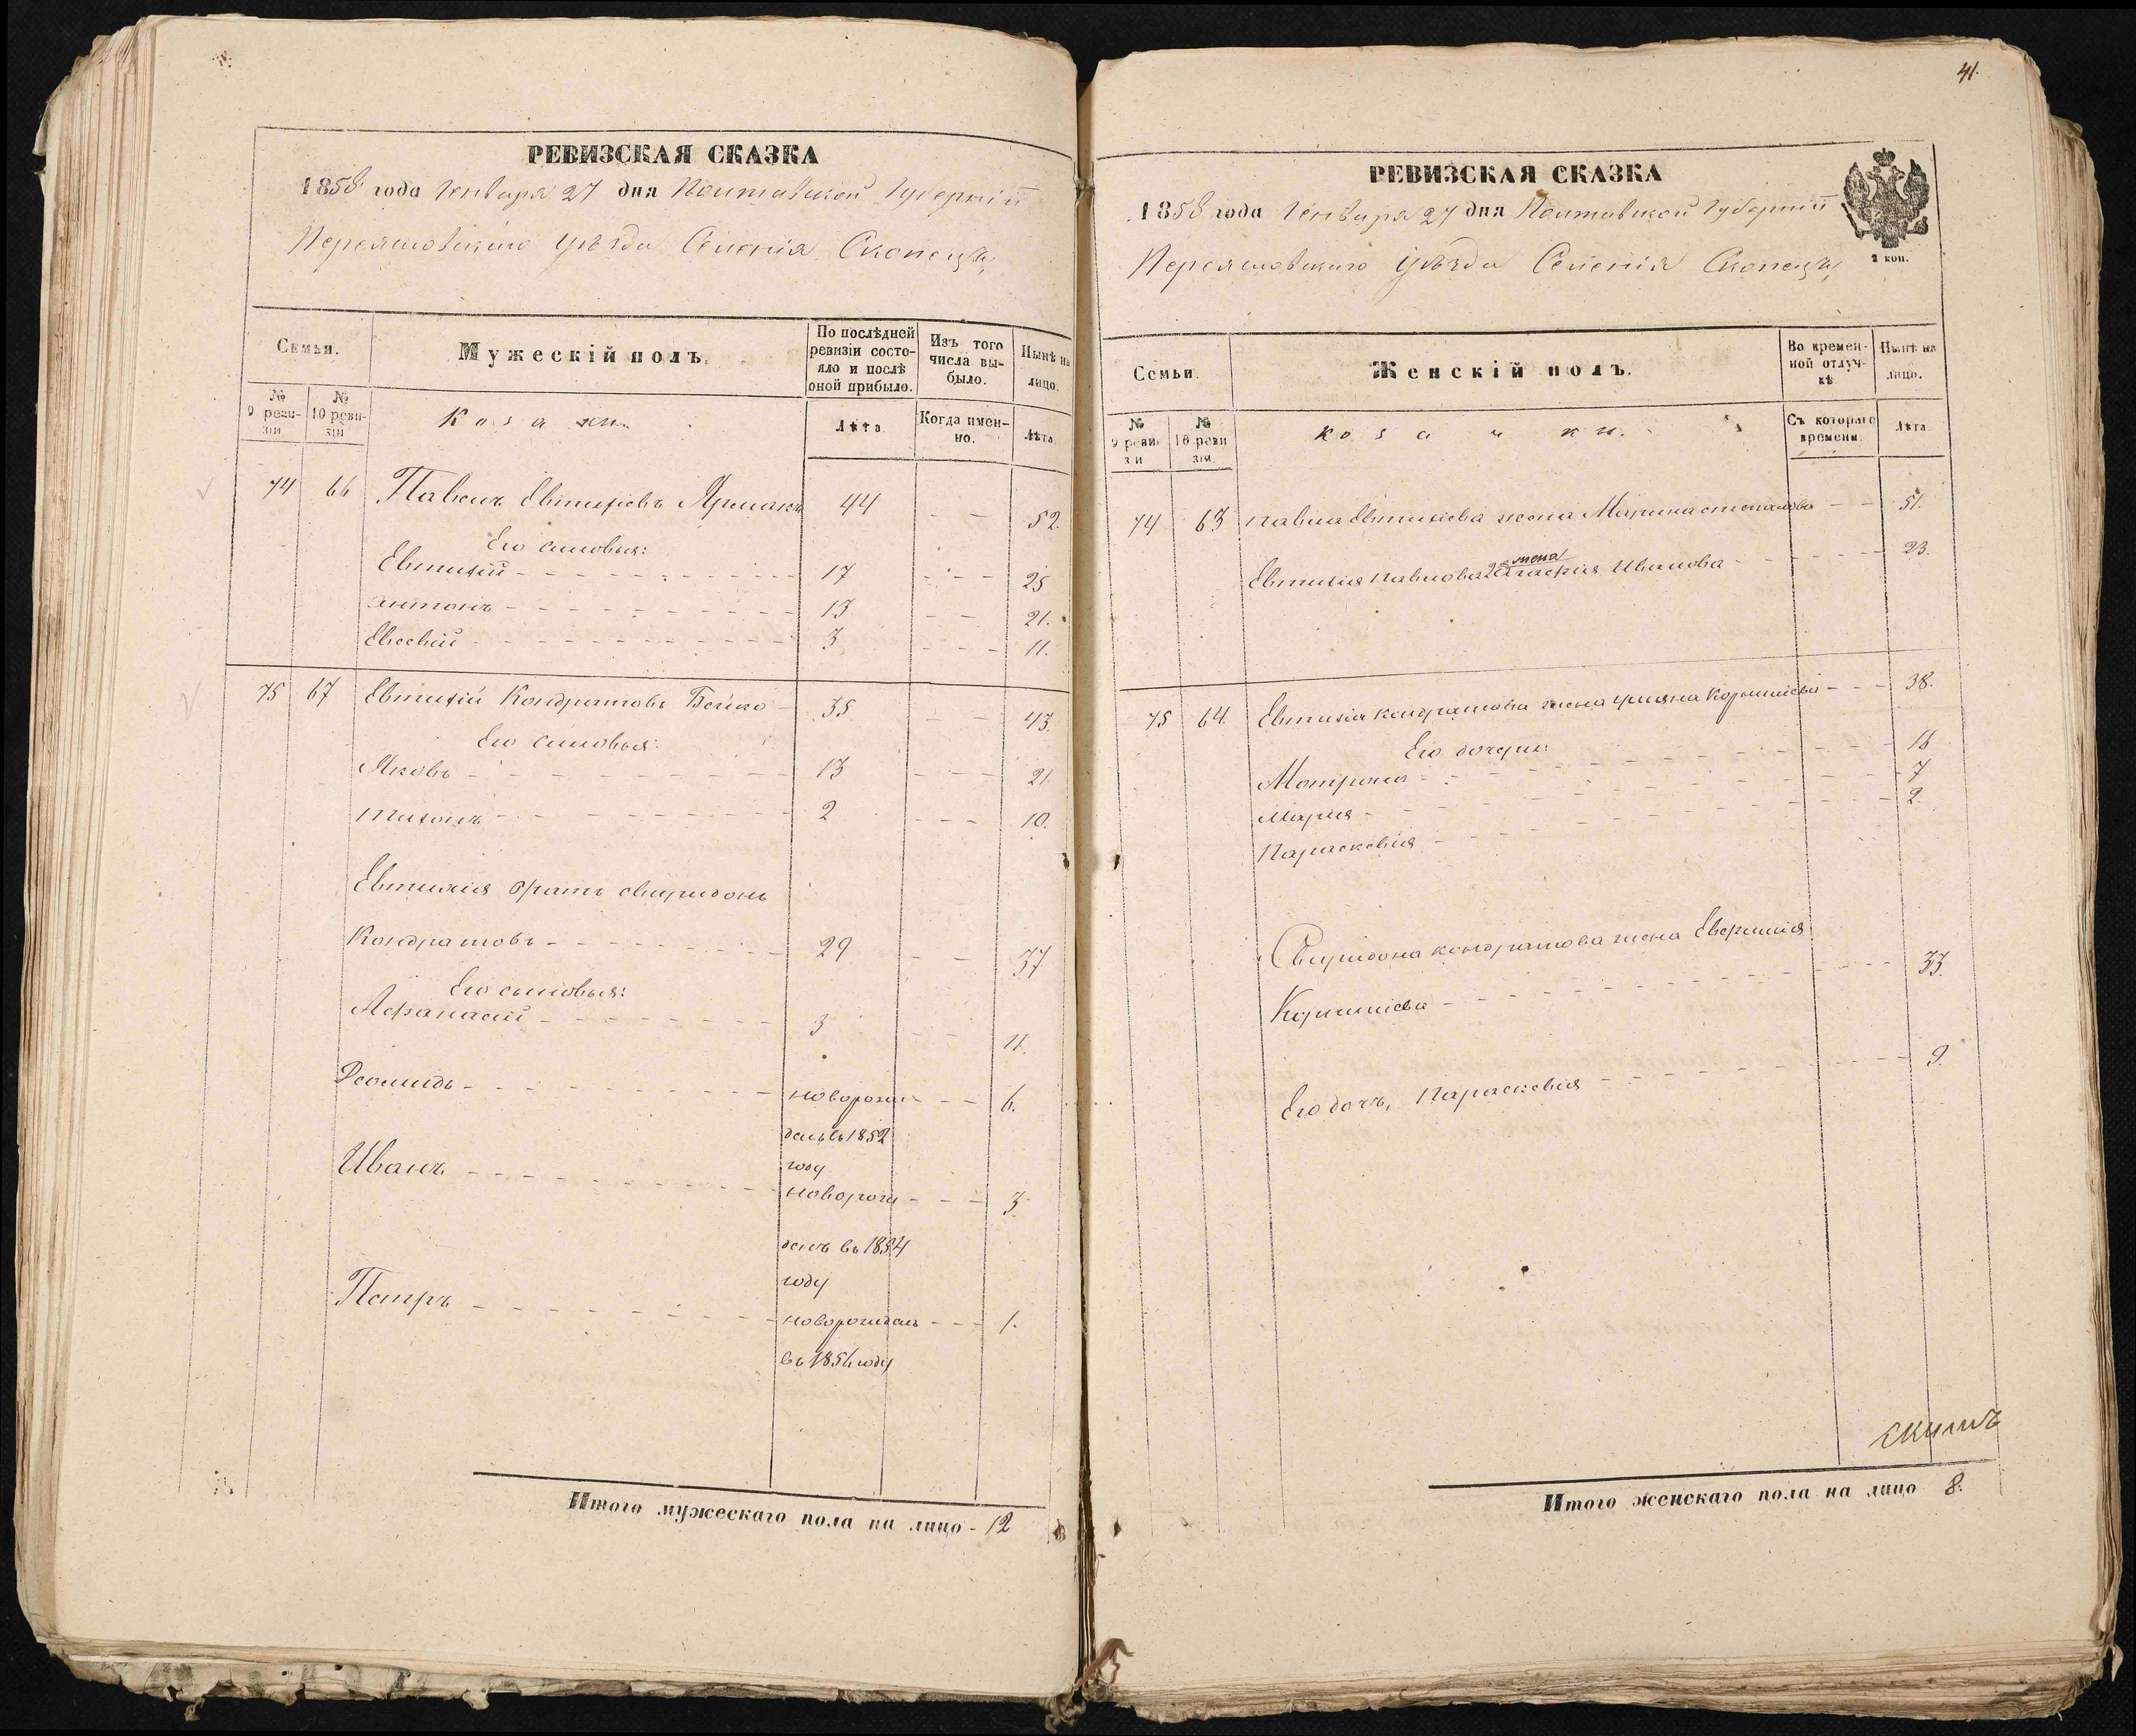 РЕВИЗСКАЯ СКАЗКА
1858 года Генваря 27 дня Полтавской Губерніи
Переяславского уѣзда Селенія Скопецъ,
Семьи.
Мужескій полъ.
По послѣдней ревизіи состояло и послѣ оной прибыло.
Изъ того числа выбыло.
Нынѣ на лицо.
№ 9 ревизіи
№ 10 ревизіи
Козаки.
Лѣта
Когда именно.
Лѣта
74 66 Павелъ Евтихіевъ Ярмакъ 44 52.
Его сыновья:
Евтихій 17 25
Антонъ 13 21.
Евсевій 3 11.
75 67 Евтихій Кондратовъ Бейко 35 43.
Его сыновья:
Яковъ 13 21
Тихонъ 2 10.
Евтихія братъ Свиридонъ
Кондратовъ 29 37
Его сыновья:
Афанасій 3 11.
Леонидъ новорож 6.
денъ въ 1852
году
Иванъ новорож 3.
денъ въ 1854
году
Петръ новорожденъ 1.
въ 1856 году
Итого мужескаго пола на лицо 12
41.
РЕВИЗСКАЯ СКАЗКА
1858 года Генваря 27 дня Полтавской Губерніи
Переяславского уѣзда Селенія Скопецъ,
2 коп.
Семьи.
Женскій полъ.
Во временной отлучкѣ
Нынѣ на лицо.
№ 9 ревизіи
№ 10 ревизіи
козачки.
Съ котораго времени.
Лѣта
74 63 Павла Евтихіева жена Марина Степанова 51.
жена
Евтихія Павлова 2 Анастасія Иванова 23.
75 64. Евтихія Кондратова жена Ульяна Корниліева 38.
Его дочери: 16
Матрона 7
Марія 2.
Параскевія
Свиридона Кондратова жена Евфимія
Корниліева 33.
Его дочь, Параскевія 9.
Итого женскаго пола на лицо 8.